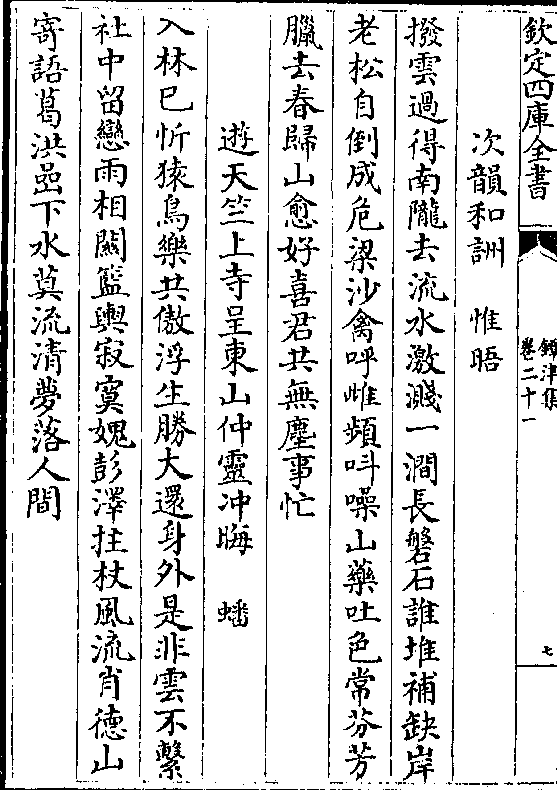 欽定四庫全書
鐔津集
卷二十一
七
次韻和詶　惟晤
撥雲過得南隴去流水激濺一澗長磐石誰堆補缺岸
老松自倒成危梁沙禽呼雌頻呌噪山藥吐色常芬芳
臘去春歸山愈好喜君共無塵事忙
遊天竺上寺呈東山仲靈冲晦　蟠
入林已忻猿鳥樂共傲浮生勝大還身外是非雲不繫
社中留戀雨相關籃輿寂寞媿彭澤拄杖風流肖德山
寄語葛洪嵒下水莫流清夢落人間